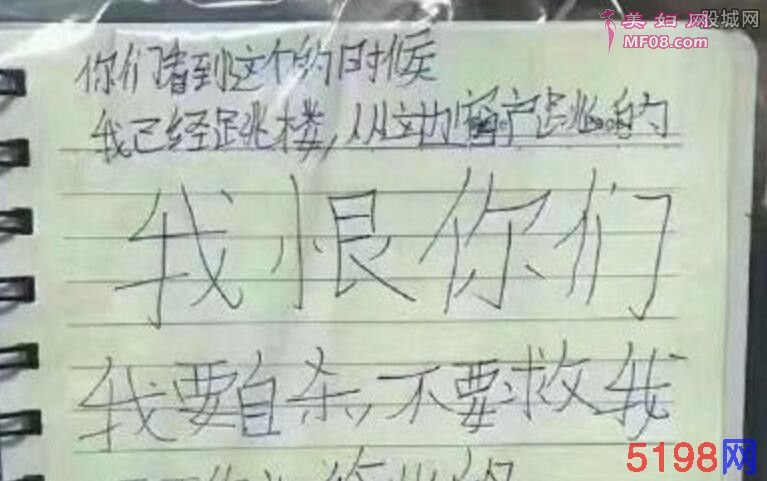 美妇网
MF08.com
股城网
你们看到这个的时候
我已经跳楼,从这边窗户跳的
我恨你们
我要自杀,不要救我
5198网